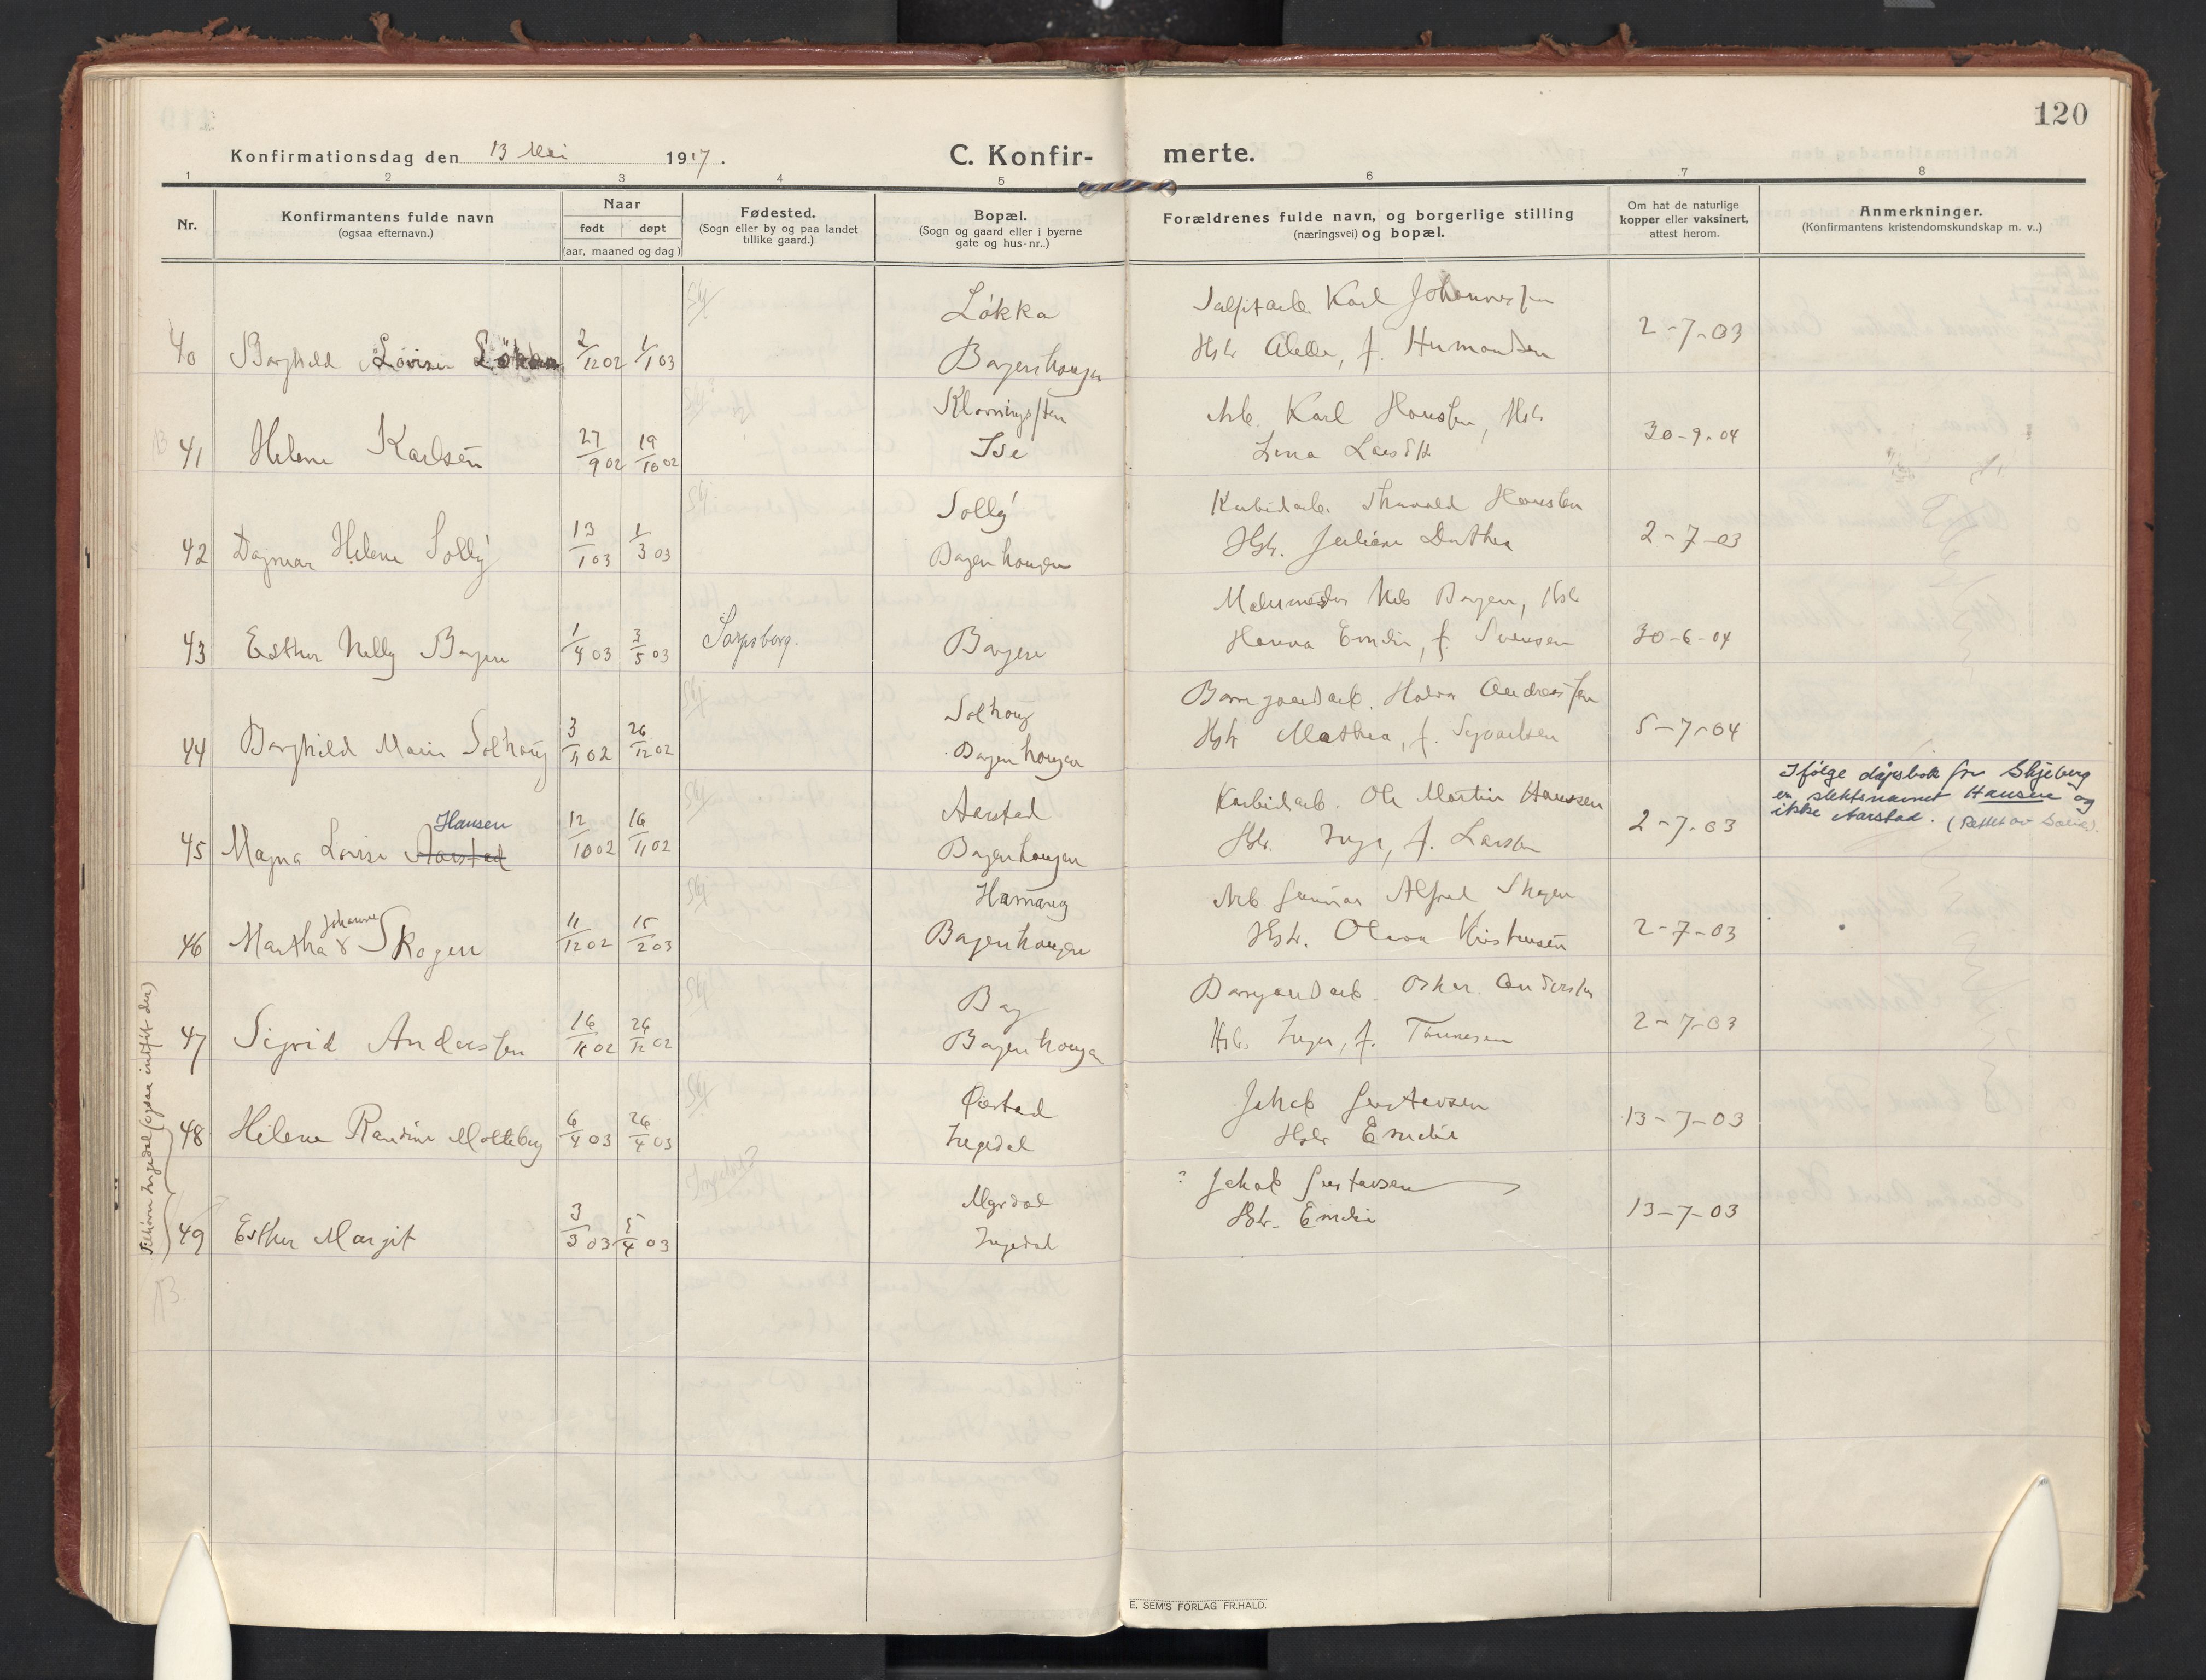 120
Konfirmationsdag den 13 Mai 1917.
C. Konfir- merte.
1 2 3 4 5 6 7 8
Nr.
Konfirmantens fulde navn
(ogsaa efternavn.)
Naar
født døpt
(aar, maaned og dag)
Fødested.
(Sogn eller by og paa landet
tillike gaard.)
Bopæl.
(Sogn og gaard eller i byerne
gate og hus-nr..)
Forældrenes fulde navn, og borgerlige stilling
(næringsvei) og bopæl.
Om hat de naturlige
kopper eller vaksinert,
attest herom.
Anmerkninger.
(Konfirmantens kristendomskundskap m. v..)
Skj
Løkka
Karl Johannessen
40 Borghild Lovise Løkka 2/12 02 1/1 03
Borgenhougen
Hstr f.
2-7-03
Klavningsten
Arb. Karl Hansen, Hstr
41 Helene Karlsen 27/9 02 19/10 02
Ise
Lina
30-9-04
Skj.
Solly
Karbidarb. Thorvald Hansen
42 Dagmar Helene Solly 13/1 03 1/3 03
Borgenhougen
Hstr. Juliane Dorthea
2-7-03
Malermester Nils Borgen, Hstr
43 Esther Nelly Borgen 1/4 03 3/5 03
Sarpsborg.
Borgen
Hanna Emilie, f. Svensen
30-6-04
Skj
Solhoug
Halvor Andreassen
44 Borghild Marie Solhoug 3/11 02 26/12 02
Borgenhougen
Hstr Mathea, f. Syvertsen
5-7-04
Ifølge dåpsbok for Skjeberg
er slektsnavnet Hansen og
ikke Aarstad. (Rettet av
Skj
Aarstad
Karbidarb. Ole Martin Hanssen
Hansen
45 Magna Lovise Aarstad 12/10 02 16/11 02
Borgenhougen
Hstr. Inga, f. Larsen
2-7-03
Skj
Hamang
Arb. Gunnar Alfred Skogen
Johanne
46 Martha Skogen 11/12 02 15/2 03
Borgenhougen
Hstr. Olava Kristensen
2-7-03
Skj
Borg
Oskar Andersen
47 Sigrid Anderssen 16/11 02 26/12 02
Borgenhougen
Hstr. Inga, f. Tønnesen
2-7-03
Skj
Ørstad
Jakob Gustavsen
48 Helene Randine Molteberg 6/4 03 26/4 03
Ingedal
Hstr Emilie
13-7-03
Ingedal
? Jakob Gustavsen
49 Esther Margit 3/3 03 5/4 03
Ingedal
Hstr. Emilie
13-7-03
Tilhører Ingedal (ogsaa indført der)
E. SEM'S FORLAG FR.HALD.